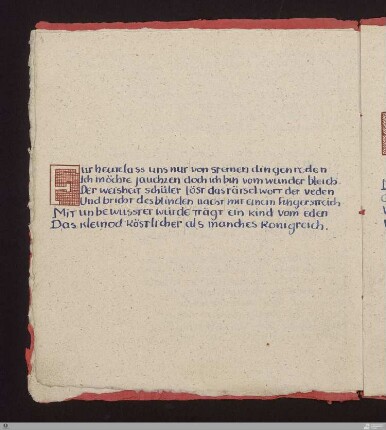 Für heute lass uns nur von sternendingen reden
Ich möchte jauchzen doch ich bin vom wunder bleich.
Der weisheit schüler löst das rätselwort der veden
Und bricht des blinden nacht mit einem fingerstreich
Mit unbewusster würde trägt ein kind vom eden
Das kleinod köstlicher als manches königreich.